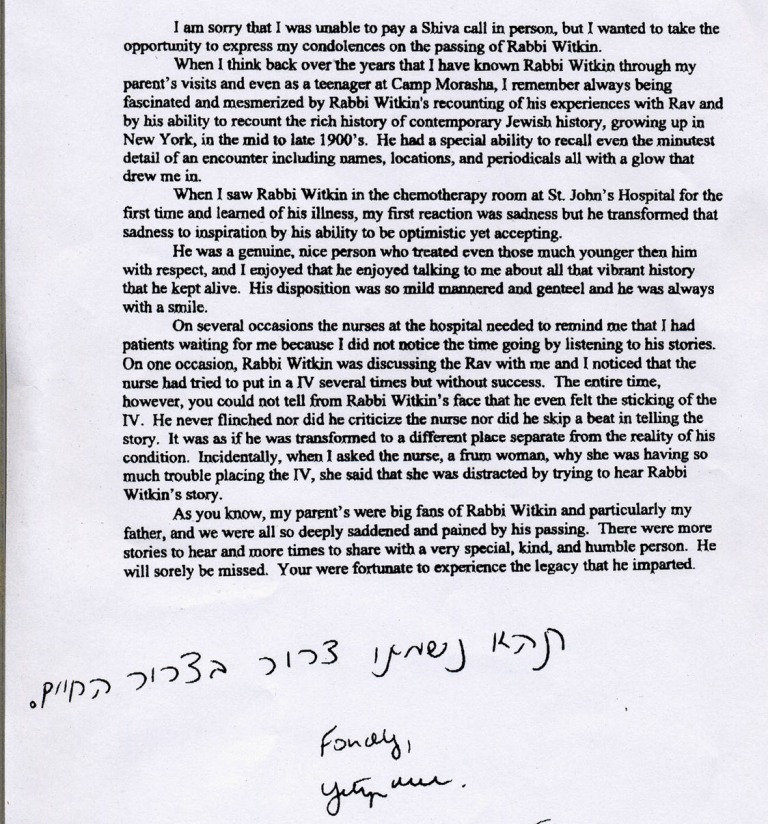 I am sorry that I was unable to pay a Shiva call in person, but I wanted to take the
opportunity to express my condolences on the passing of Rabbi Witkin.
When I think back over the years that I have known Rabbi Witkin through my
parent's visits and even as a teenager at Camp Morasha, I remember always being
fascinated and mesmerized by Rabbi Witkin's recounting of his experiences with Rav and
by his ability to recount the rich history of contemporary Jewish history, growing up in
New York, in the mid to late 1900's. He had a special ability to recall even the minutest
detail of an encounter including names, locations, and periodicals all with a glow that
drew me in.
When I saw Rabbi Witkin in the chemotherapy room at St. John's Hospital for the
first time and learned of his illness, my first reaction was sadness but he transformed that
sadness to inspiration by his ability to be optimistic yet accepting.
He was a genuine, nice person who treated even those much younger then him
with respect, and I enjoyed that he enjoyed talking to me about all that vibrant history
that he kept alive. His disposition was so mild mannered and genteel and he was always
with a smile.
On several occasions the nurses at the hospital needed to remind me that I had
patients waiting for me because I did not notice the time going by listening to his stories.
On one occasion, Rabbi Witkin was discussing the Rav with me and I noticed that the
nurse had tried to put in a IV several times but without success. The entire time,
however, you could not tell from Rabbi Witkin's face that he even felt the sticking of the
IV. He never flinched nor did he criticize the nurse nor did he skip a beat in telling the
story. It was as if he was transformed to a different place separate from the reality of his
condition. Incidentally, when I asked the nurse, a frum woman, why she was having so
much trouble placing the IV, she said that she was distracted by trying to hear Rabbi
Witkin's story.
As you know, my parent's were big fans of Rabbi Witkin and particularly my
father, and we were all so deeply saddened and pained by his passing. There were more
stories to hear and more times to share with a very special, kind, and humble person. He
will sorely be missed. Your were fortunate to experience the legacy that he imparted.
תהא נשמתו צרור בצרור החיים.
Fondly,